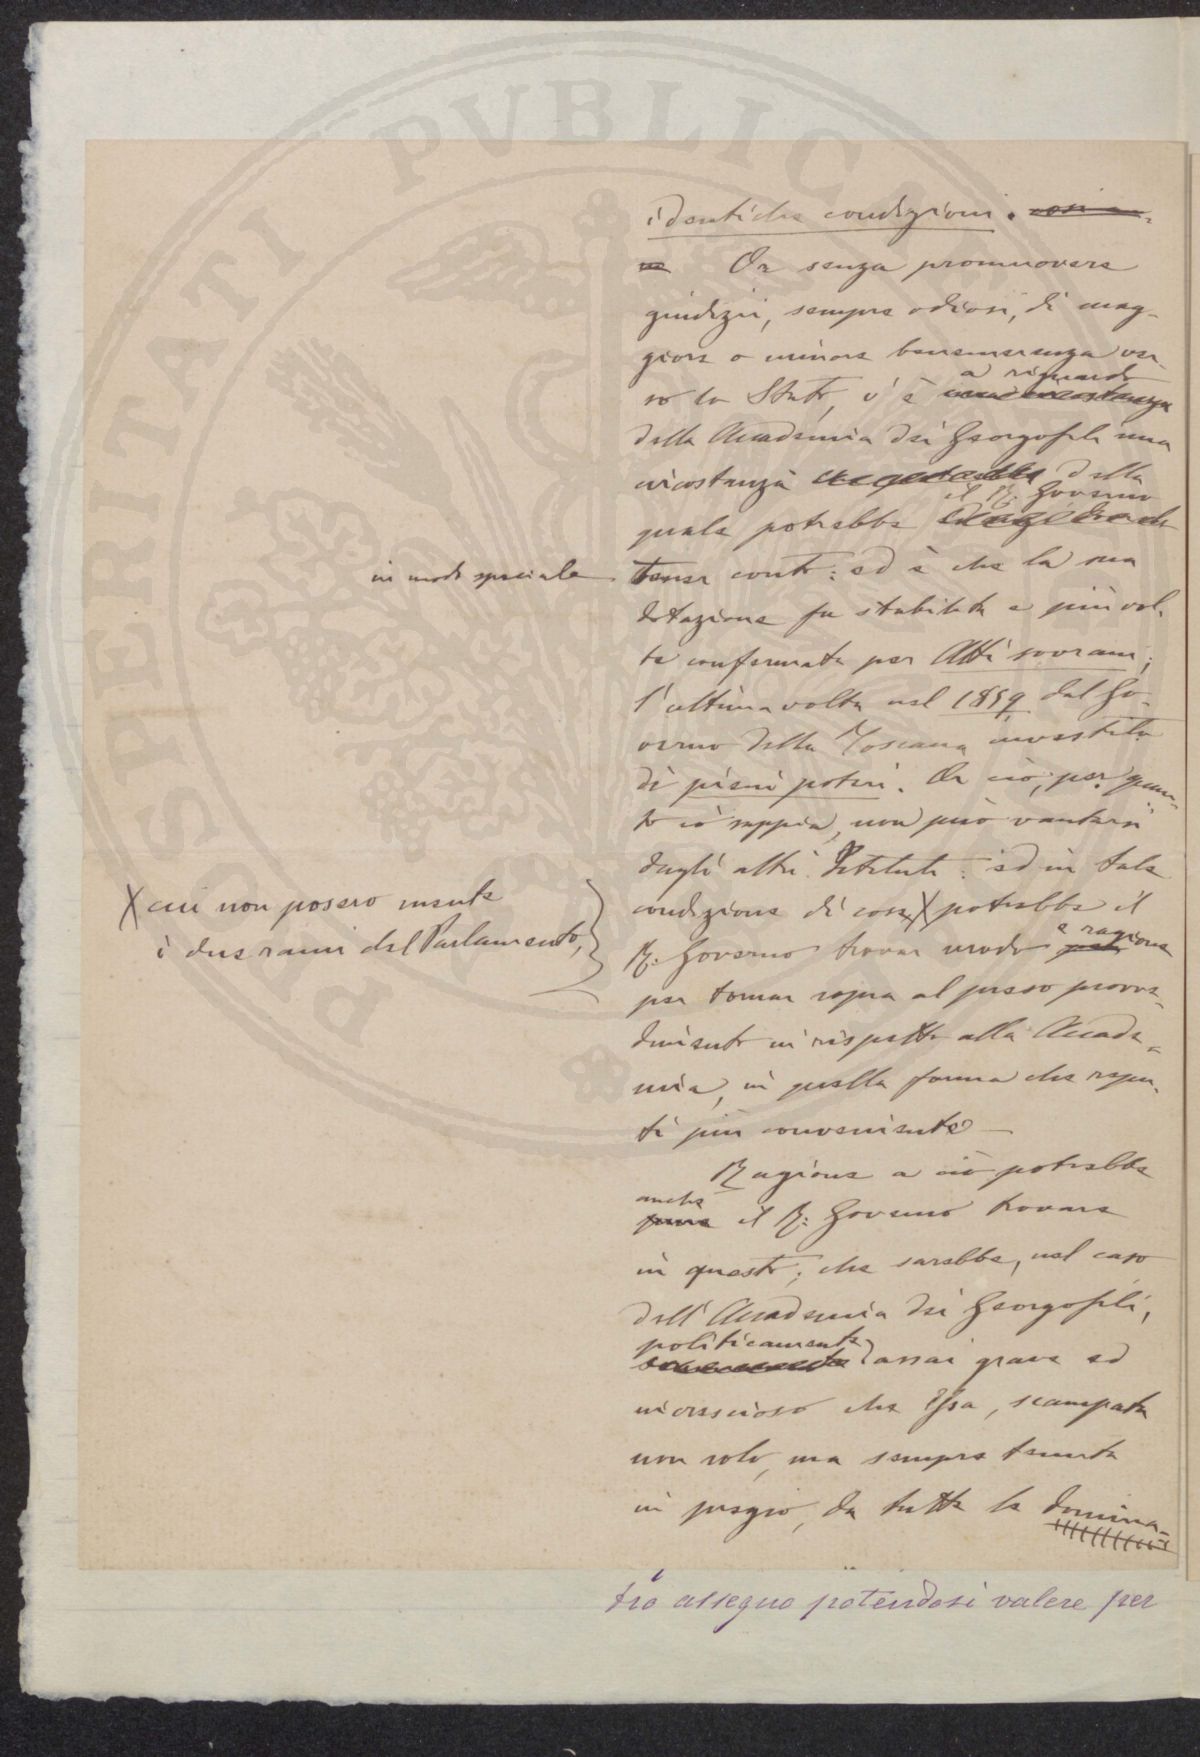 identiche condizioni.
Or senza promuovere
giudizii, sempre odiosi, di mag-
giore o minore benemerenza ver-
so lo Stato, v'è a riguardo
della Accademia dei Georgofili una
circostanza della
quale potrebbe il R. Governo
in modo speciale
tener conto: ed è che la sua
dotazione fu stabilita e più vol-
te confermata per Atti sovrani;
l'ultima volta nel 1859 dal Go-
verno della Toscana investito
di pieni poteri. Or ciò, per quan-
to io sappia, non può vantarsi
dagli altri Istituti: ed in tale
condizione di cose X potrebbe il
X cui non posero mente
i due rami del Parlamento,
R. Governo trovar modo e ragione
per tornar sopra al preso provve-
dimento in rispetto alla Accade-
mia, in quella forma che repu-
ti più conveniente —
Ragione a ciò potrebbe
anche il R. Governo trovare
in questo; che sarebbe, nel caso
dell'Accademia dei Georgofili,
politicamente assai grave ed
increscioso che Essa, scampata
non solo, ma sempre tenuta
in pregio, da tutte le domina-
tro assegno potendosi valere per
PROSPERITATI PVBLICAE